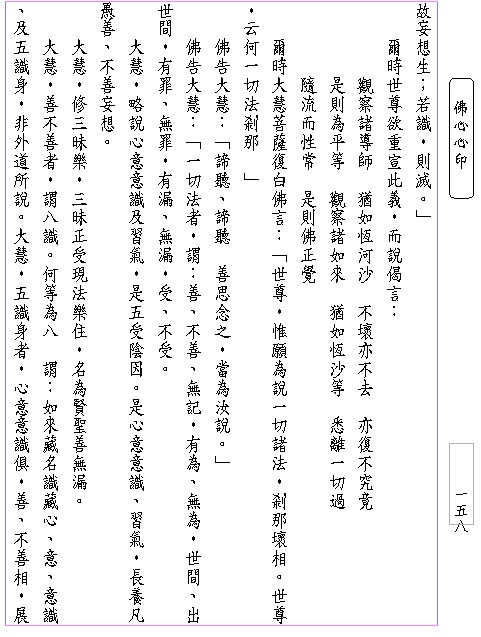 佛心心印
一五八
故妄想生；若識，則滅。」
爾時世尊欲重宣此義，而說偈言：
觀察諸導師　猶如恆河沙　不壞亦不去　亦復不究竟
是則為平等　觀察諸如來　猶如恆沙等　悉離一切過
隨流而性常　是則佛正覺
爾時大慧菩薩復白佛言：「世尊，惟願為說一切諸法，剎那壞相。世尊
，云何一切法剎那　」
佛告大慧：「諦聽、諦聽　善思念之，當為汝說。」
佛告大慧：「一切法者，謂：善、不善、無記，有為、無為，世間、出
世間，有罪、無罪，有漏、無漏，受、不受。
大慧，略說心意意識及習氣，是五受陰因。是心意意識、習氣，長養凡
愚善、不善妄想。
大慧，修三昧樂，三昧正受現法樂住，名為賢聖善無漏。
大慧，善不善者，謂八識。何等為八　謂：如來藏名識藏心、意、意識
、及五識身，非外道所說。大慧，五識身者，心意意識俱，善、不善相，展